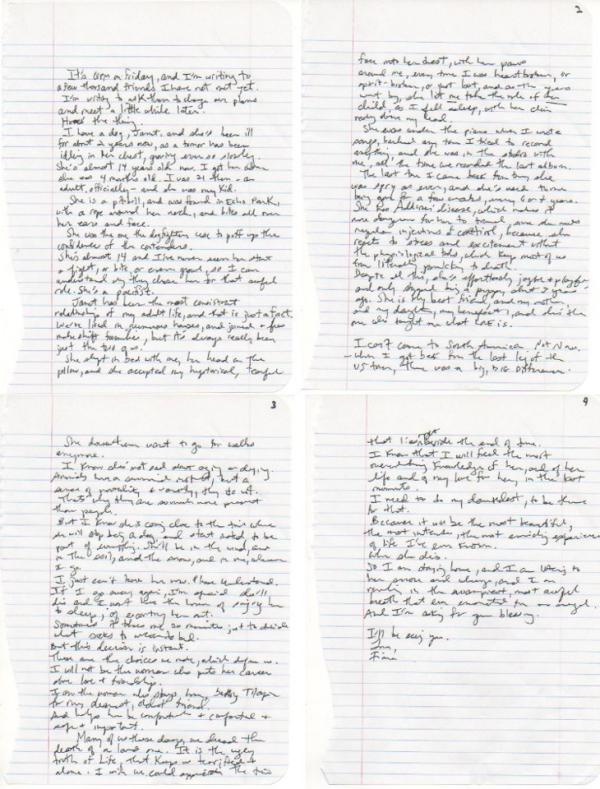 It's 6pm on Friday, and I'm writing to
a few thousand friends I have not met yet.
I'm writing to ask them to change our plans
and meet a little while later.
Here's the thing.
I have a dog, Janet, and she's been ill
for about 2 years now, as a tumor has been
idling in her chest, growing ever so slowly.
She's almost 14 years old now. I got her when
she was 4 months old. I was 21 then – an
adult, officially – and she was my kid.
She is a pitbull, and was found in Echo Park,
with a rope around her neck, and bites all over
her ears and face.
She was the one the dogfighters use to puff up the
confidence of the contenders.
She's almost 14 and I've never seen her start
a fight, or bite, or even growl, so I can
understand why they chose her for that awful
role. She's a pacifist.
Janet has been the most consistent
relationship of my adult life, and that is just a fact.
We've lived in numerous houses, and joined a few
makeshift families, but it's always really been
just the two of us.
She slept in bed with me, her head on the
pillow, and she accepted my hysterical, tearful
2
face into her chest, with her paws
around me, every time I was heartbroken, or
spirit-broken, or just lost, and as the years
went by, she let me take the role of her
child, as I fell asleep, with her chin
resting above my head.
She was under the piano when I wrote
songs, barked any time I tried to record
anything, and she was in the studio with
me, all the time we recorded the last album.
The last time I came back from tour, she
was spry as ever, and she's used to me
being gone for a few weeks, every 6 or 7 years.
She has Addison's disease, which makes it
more dangerous for her to travel, since she needs
regular injections of Cortisol, because she
reacts to stress and excitement without
the physiological tools which keep most of us
from literally panicking to death.
Despite all this, she's effortlessly joyful & playful
and only stopped being a puppy about 3 years
ago. She is my best friend, and my mother,
and my daughter, my benefactor, and she's the
one who taught me what love is.
I can't come to South America. Not Now.
– When I got back from the last leg of the
US tour, there was a big, big difference.
3
She doesn't even want to go for walks
anymore.
I know she's not sad about aging or dying.
Animals have a survival instinct, but a
sense of mortality & vanity, they do not.
That's why they are so much more present
than people.
But I know she's coming close to the time where
she will stop being a dog, and start instead, to be
part of everything. She'll be in the wind, and
in the soil, and the snow, and in me, wherever
I go.
I just can't leave her now. Please understand.
If I go away again, I'm afraid she'll
die and I won't have the honor of singing her
to sleep, of escorting her out.
Sometimes it takes me 20 minutes just to decide
what socks to wear to bed.
But this decision is instant.
These are the choices we make, which define us.
I will not be the woman who puts her career
above love & friendship.
I am the woman who stays home, baking Tilapia
for my dearest, oldest friend.
And helps her be comfortable & comforted &
safe & important.
Many of us these days, we dread the
death of a loved one. It is the ugly
truth of Life, that keeps us terrified &
alone. I wish we could appreciate the time
4
that lies right beside the end of time.
I know that I will feel the most
overwhelming knowledge of her, and of her
life and of my love for her, in the last
moments.
I need to do my damnedest, to be there
for that.
Because it will be the most beautiful,
the most intense, the most enriching experience
of life I've ever known.
When she dies.
So I am staying home, and I am listening to
her snore and wheeze, and I am
revelling in the swampiest, most awful
breath that ever emanated from an angel.
And I'm asking for your blessing.
I'll be seeing you.
Love,
Fiona